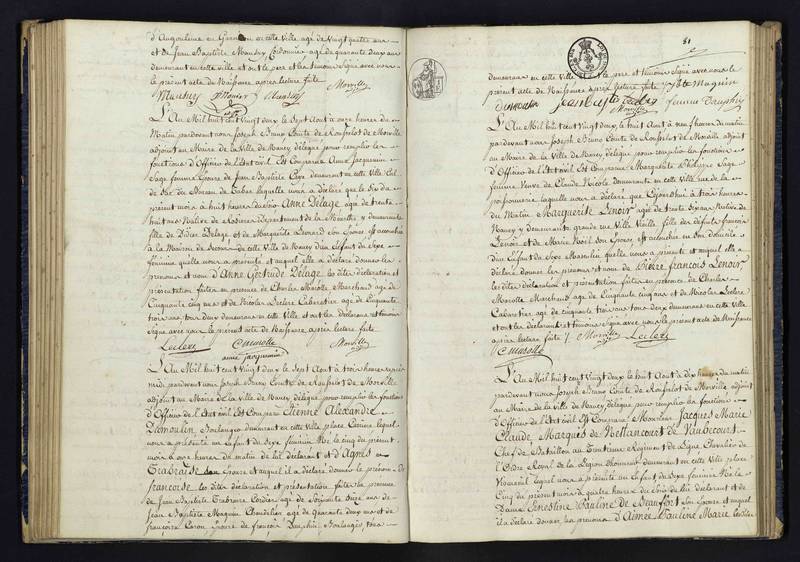 d'Angoulême en Garnison en cette Ville agé de Vingt quatre ans
et de Jean Baptiste Mansuy Cordonnier agé de quarante deux ans
demeurant en cette ville et ont le pere et les témoins signé avec nous
le présent acte de Naissance après lecture faite
Mansuy Mansuy Morville
L'An Mil huit Cent Vingt deux le Sept Aout à onze heures du
Matin pardevant nous Joseph Bruno Comte de Ronfrelot de Morville
adjoint au Maire de la Ville de Nancy délégué pour remplir les
fonctions d'Officier de l'Etat civil Est Comparue Anne Jacquemin
Sage femme Epouse de Jean Baptiste demeurant en cette Ville Cul
de Sac du Bureau de Tabac laquelle nous a déclaré que le Six du
présent mois à huit heures du Soir Anne Delage agée de trente
huit ans Native de Département de la Meurthe y demeurante
fille de Didier Delage et de Marguerite Leonard son Epouse est accouchée
à la Maison de Secours de cette Ville de Nancy d'un Enfant du Sexe
féminin quelle nous a présenté et auquel elle a déclaré donner les
prenoms et nom d'Anne Gertrude Delage les dites déclaration et
présentation faites en présence de Charles Mariotte Marchand agé de
Cinquante cinq ans et de Nicolas Leclerc Cabaretier agé de Cinquante
trois ans tous deux demeurans en cette Ville et ont les déclarans et témoins
signé avec nous le présent acte de Naissance après lecture faite
Leclerc C mariotte Morville
anne jacquemin
L'An Mil huit cent Vingt deux le Sept Aout à trois heures après
midi pardevant nous Joseph Bruno Comte de Ronfrelot de Morville
adjoint au Maire de la Ville de Nancy délégué pour remplir les fonctions
d'Officier de l'Etat civil Est Comparu Etienne Alexandre
Demoulin Boulanger demeurant en cette Ville place lequel
nous a présenté un Enfant du Sexe féminin Née le cinq du présent
mois à onze heures du matin de lui déclarant et d'Agnès
Epouse et auquel il a déclaré donner le prénom de
françoise les dites déclaration et présentation faites en présence
de Jean Baptiste Cordier agé de Soixante ans de
Jean Baptiste Maquin Chandelier agé de quarante deux ans et de
françoise Epouse de françois Dauphin, Boulanger tous
81
demeurans en cette Ville et ont le pere et témoins signé avec nous le
présent acte de Naissance après lecture faite JBte Maquin
Demoulin femme Dauphin
Morville
L'An Mil huit cent Vingt deux, le huit Aout à neuf heures du matin
pardevant nous Joseph Bruno Comte de Ronfrelot de Morville adjoint
au Maire de la Ville de Nancy délégué pour remplir les fonctions
d'Officier de l'Etat civil Est Comparue Marguerite Sage
femme Veuve de Claude Nicole demeurante en cette Ville rue de la
poissonnerie laquelle nous a déclaré que Cejourd'hui à trois heures
du Matin Marguerite Lenoir agée de trente Six ans Native de
Nancy y demeurante grande rue Ville Vieille fille des défunts françois
Lenoir et de Marie Noël son Epouse est accouchée en son domicile
d'un Enfant du Sexe Masculin quelle nous a présenté et auquel elle a
déclaré donner les prenoms et nom de Pierre françois Lenoir,
les dites déclaration et présentation faites en présence de Charles
Mariotte Marchand agé de Cinquante cinq ans et de Nicolas Leclerc
Cabaretier agé de cinquante trois ans tous deux demeurans en cette Ville
et ont les déclarant et témoins signé avec nous le présent acte de Naissance
après lecture faite Morville Leclerc
C mariotte
L'An Mil huit cent Vingt deux le huit Aout à dix heures du matin
pardevant nous Joseph Bruno Comte de Ronfrelot de Morville adjoint
au Maire de la Ville de Nancy délégué pour remplir les fonctions
d'Officier de l'Etat civil Est Comparu Monsieur Jacques Marie
Claude Marquis de Nettancourt de Vaubecourt
Chef de Bataillon au Trentieme Regiment de Ligne Chevalier de
l'Ordre Royal de la Légion d'honneur demeurant en cette Ville place
lequel nous a présenté un Enfant du Sexe féminin Née le
Cinq du présent mois à quatre heures du Soir de lui déclarant et de
Dame Ernestine Pauline de Beaufort son Epouse et auquel
il a déclaré donner les prenoms d'Aimée Pauline Marie les dites